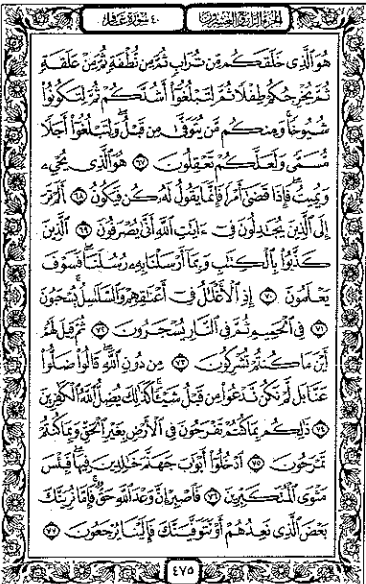 الجزء الرابع والعشرون ٤٠ سورة غافر
هُوَ ٱلَّذِى خَلَقَكُم مِّن تُرَابٍ ثُمَّ مِن نُّطْفَةٍ ثُمَّ مِنْ عَلَقَةٍ
ثُمَّ يُخْرِجُكُمْ طِفْلًا ثُمَّ لِتَبْلُغُوٓا۟ أَشُدَّكُمْ ثُمَّ لِتَكُونُوا۟
شُيُوخًا وَمِنكُم مَّن يُتَوَفَّىٰ مِن قَبْلُ وَلِتَبْلُغُوٓا۟ أَجَلًا
مُّسَمًّى وَلَعَلَّكُمْ تَعْقِلُونَ ٦٧ هُوَ ٱلَّذِى يُحْىِۦ
وَيُمِيتُ فَإِذَا قَضَىٰٓ أَمْرًا فَإِنَّمَا يَقُولُ لَهُۥ كُن فَيَكُونُ ٦٨ أَلَمْ تَرَ
إِلَى ٱلَّذِينَ يُجَٰدِلُونَ فِىٓ ءَايَٰتِ ٱللَّهِ أَنَّىٰ يُصْرَفُونَ ٦٩ ٱلَّذِينَ
كَذَّبُوا۟ بِٱلْكِتَٰبِ وَبِمَآ أَرْسَلْنَا بِهِۦ رُسُلَنَا فَسَوْفَ
يَعْلَمُونَ ٧٠ إِذِ ٱلْأَغْلَٰلُ فِىٓ أَعْنَٰقِهِمْ وَٱلسَّلَٰسِلُ يُسْحَبُونَ
٧١ فِى ٱلْحَمِيمِ ثُمَّ فِى ٱلنَّارِ يُسْجَرُونَ ٧٢ ثُمَّ قِيلَ لَهُمْ
أَيْنَ مَا كُنتُمْ تُشْرِكُونَ ٧٣ مِن دُونِ ٱللَّهِ قَالُوا۟ ضَلُّوا۟
عَنَّا بَل لَّمْ نَكُن نَّدْعُوا۟ مِن قَبْلُ شَيْـًٔا كَذَٰلِكَ يُضِلُّ ٱللَّهُ ٱلْكَٰفِرِينَ
٧٤ ذَٰلِكُم بِمَا كُنتُمْ تَفْرَحُونَ فِى ٱلْأَرْضِ بِغَيْرِ ٱلْحَقِّ وَبِمَا كُنتُمْ
تَمْرَحُونَ ٧٥ ٱدْخُلُوٓا۟ أَبْوَٰبَ جَهَنَّمَ خَٰلِدِينَ فِيهَا فَبِئْسَ
مَثْوَى ٱلْمُتَكَبِّرِينَ ٧٦ فَٱصْبِرْ إِنَّ وَعْدَ ٱللَّهِ حَقٌّ فَإِمَّا نُرِيَنَّكَ
بَعْضَ ٱلَّذِى نَعِدُهُمْ أَوْ نَتَوَفَّيَنَّكَ فَإِلَيْنَا يُرْجَعُونَ ٧٧
٤٧٥